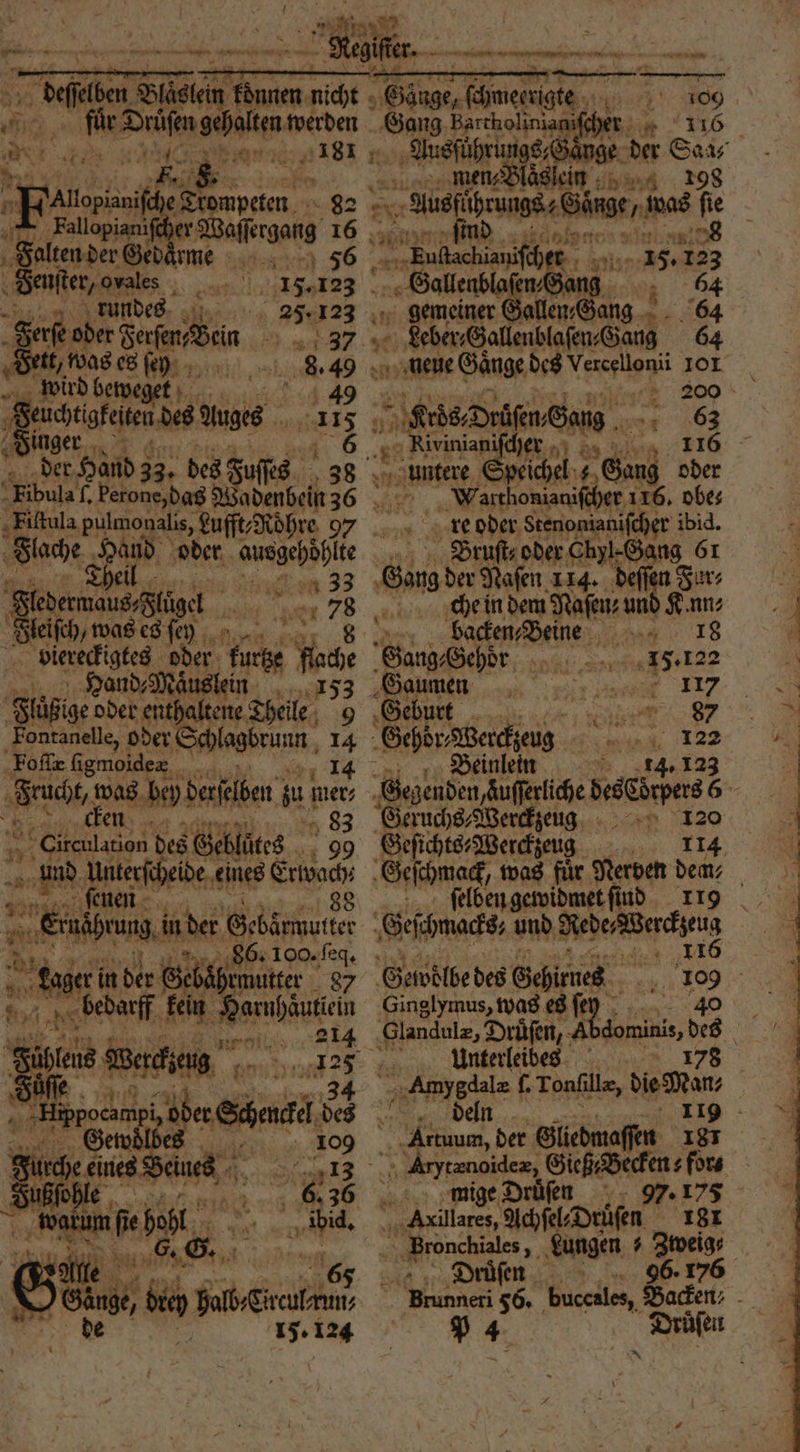 Regiſter.
deſſelben Blåslein kȯnnen nicht
fůr Drůſen gehalten werden
181
F. F.
FAllopianiſche Trompeten 82
Fallopianiſcher Waſſergang 16
Falten der Gedårme 56
Fenſter, ovales 15. 123
rundes 25. 123
Ferſe oder Ferſen⸗Bein 37
Fett, was es ſey 8. 49
wird beweget 49
Feuchtigkeiten des Auges 115
Finger 6
der Hand 33. des Fuſſes 38
Fibula ſ. Perone, das Wadenbein 36
Fiſtula pulmonalis, Lufft⸗Rȯhre 97
Flache Hand oder ausgehȯhlte
Theil 33
Fledermaus⸗Flůgel 78
Fleiſch, was es ſey 8
viereckigtes oder kurtze flache
Hand⸗Måuslein 153
Flůßige oder enthaltene Theile 9
Fontanelle, oder Schlagbrunn 14
Foſſæ ſigmoideæ 14
Frucht, was bey derſelben zu mer⸗
cken 83
Circulation des Geblůtes 99
und Unterſcheide eines Erwach⸗
ſenen 88
Ernåhrung in der Gebårmutter
86. 100. ſeq.
Lager in der Gebåhrmutter 87
bedarff kein Harnhåutlein
214
Fůhlens Werckzeug 125
Fůſſe 34
Hippocampi, oder Schenckel des
Gewȯlbes 109
Furche eines Beines 13
Fußſohle 6. 36
warum ſie hohl ibid.
G. G.
GAlle 65
Gånge, drey halb⸗Circul⸗run⸗
de 15. 124
Gånge, ſchmeerigte 109
Gang Bartholinianiſcher 116
Ausfůhrungs⸗Gånge der Saa⸗
men⸗Blåslein 198
Ausfůhrungs⸗Gånge, was ſie
ſind 8
Euſtachianiſcher 15. 123
Gallenblaſen⸗Gang 64
gemeiner Gallen⸗Gang 64
Leber⸗Gallenblaſen⸗Gang 64
neue Gånge des Vercellonii 101
200
Krȯs⸗Drůſen⸗Gang 63
Rivinianiſcher 116
untere Speichel⸗Gang oder
Warthonianiſcher 116. obe⸗
re oder Stenonianiſcher ibid.
Bruſt⸗ oder Chyl-Gang 61
Gang der Naſen 114. deſſen Fur⸗
che in dem Naſen⸗ und Kinn⸗
backen⸗Beine 18
Gang⸗Gehȯr 15. 122
Gaumen 117
Geburt 87
Gehȯr⸗Werckzeug 122
Beinlein 14. 123
Gegenden, åuſſerliche des Cȯrpers 6
Geruchs⸗Werckzeug 120
Geſichts⸗Werckzeug 114
Geſchmack, was fůr Nerven dem⸗
ſelben gewidmet ſind 119
Geſchmacks⸗ und Rede⸗Werckzeug
116
Gewȯlbe des Gehirnes 109
Ginglymus, was es ſey 40
Glandulæ, Drůſen, Abdominis, des
Unterleibes 178
Amygdalæ ſ. Tonſillæ, die Man⸗
deln 119
Artuum, der Gliedmaſſen 181
Arytænoideæ, Gieß⸗Becken⸗for⸗
mige Drůſen 97. 175
Axillares, Achſel⸗Drůſen 181
Bronchiales, Lungen⸗Zweig⸗
Drůſen 96. 176
Brunneri 56. buccales, Backen⸗
P 4 Drůſen